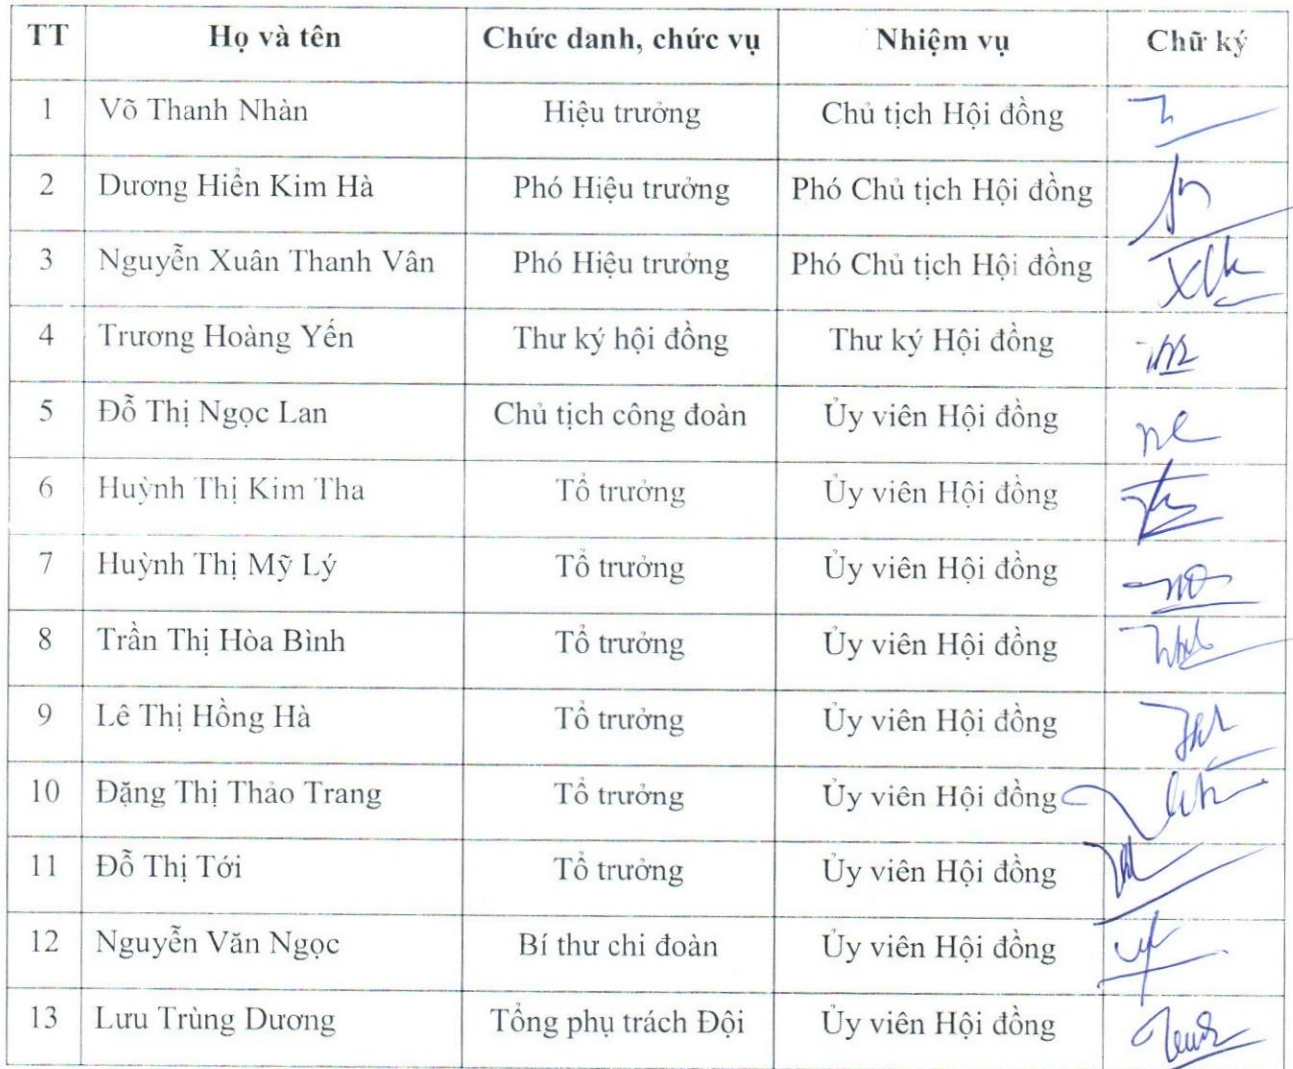 TT Họ và tên Chức danh, chức vụ Nhiệm vụ Chữ ký
1 Võ Thanh Nhàn Hiệu trưởng Chủ tịch Hội đồng
2 Dương Hiển Kim Hà Phó Hiệu trưởng Phó Chủ tịch Hội đồng
3 Nguyễn Xuân Thanh Vân Phó Hiệu trưởng Phó Chủ tịch Hội đồng
4 Trương Hoàng Yến Thư ký hội đồng Thư ký Hội đồng
5 Đỗ Thị Ngọc Lan Chủ tịch công đoàn Ủy viên Hội đồng
6 Huỳnh Thị Kim Tha Tổ trưởng Ủy viên Hội đồng
7 Huỳnh Thị Mỹ Lý Tổ trưởng Ủy viên Hội đồng
8 Trần Thị Hòa Bình Tổ trưởng Ủy viên Hội đồng
9 Lê Thị Hồng Hà Tổ trưởng Ủy viên Hội đồng
10 Đặng Thị Thảo Trang Tổ trưởng Ủy viên Hội đồng
11 Đỗ Thị Tới Tổ trưởng Ủy viên Hội đồng
12 Nguyễn Văn Ngọc Bí thư chi đoàn Ủy viên Hội đồng
13 Lưu Trùng Dương Tổng phụ trách Đội Ủy viên Hội đồng